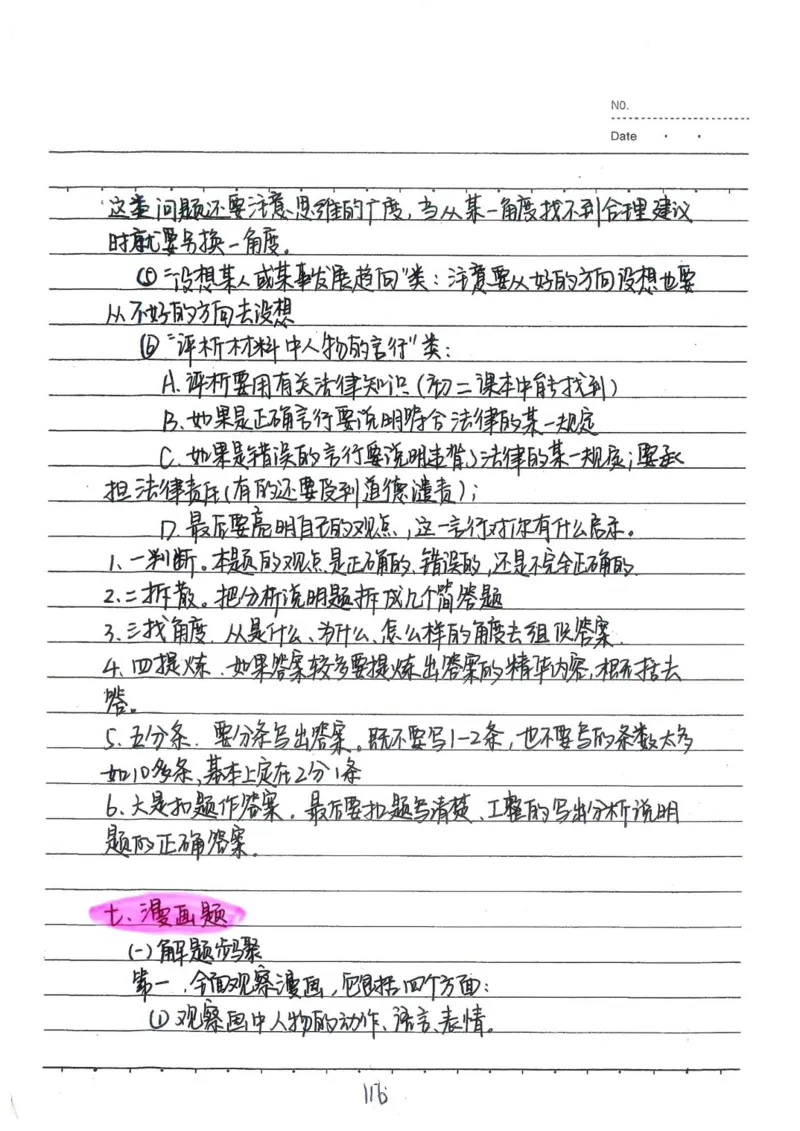 NO.
Date
这类问题还要注意思维的广度,当从某一角度找不到合理建议
时就要另换一角度。
⑤“设想某人或某事发展趋向”类:注意要从好的方向设想也要
从不好的方向去设想
⑥“评析材料中人物的言行”类:
A.评析要用有关法律知识(初二课本中能找到)
B.如果是正确言行要说明符合法律的某一规定
C.如果是错误的言行要说明违背法律的某一规定;要承
担法律责任(有的还要受到道德谴责);
D.最后要亮明自己的观点,这一言行对你有什么启示。
1.一判断。本题的观点是正确的、错误的,还是不完全正确的
2.二拆散。把分析说明题拆成几个简答题
3.三找角度.从是什么、为什么、怎么样的角度去组织答案.
4.四提炼.如果答案较多要提炼出答案的精华内容,概括去
答。
5.五分条.要分条写出答案。既不要写1-2条,也不要写的条数太多
如10多条,基本上定在2分1条
6.六是扣题作答案。最后要扣题写清楚、工整的写出分析说明
题的正确答案。
七、漫画题
(一)解题步骤
第一,全面观察漫画,包括四个方面:
①观察画中人物的动作、语言、表情。
116